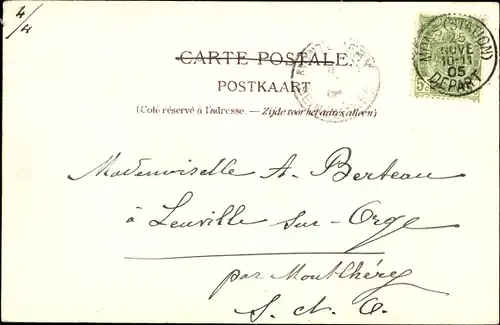 4/4
CARTE POSTALE.
POSTKAART
(Coté réservé à l'adresse. — Zijde voor het adres alleen)
MONS (STATION)
25
NOVE
10-11
05
DEPART
Mademoiselle A. Berteau
à Leuville sur-Orge
par Montlhéry
S. et O.